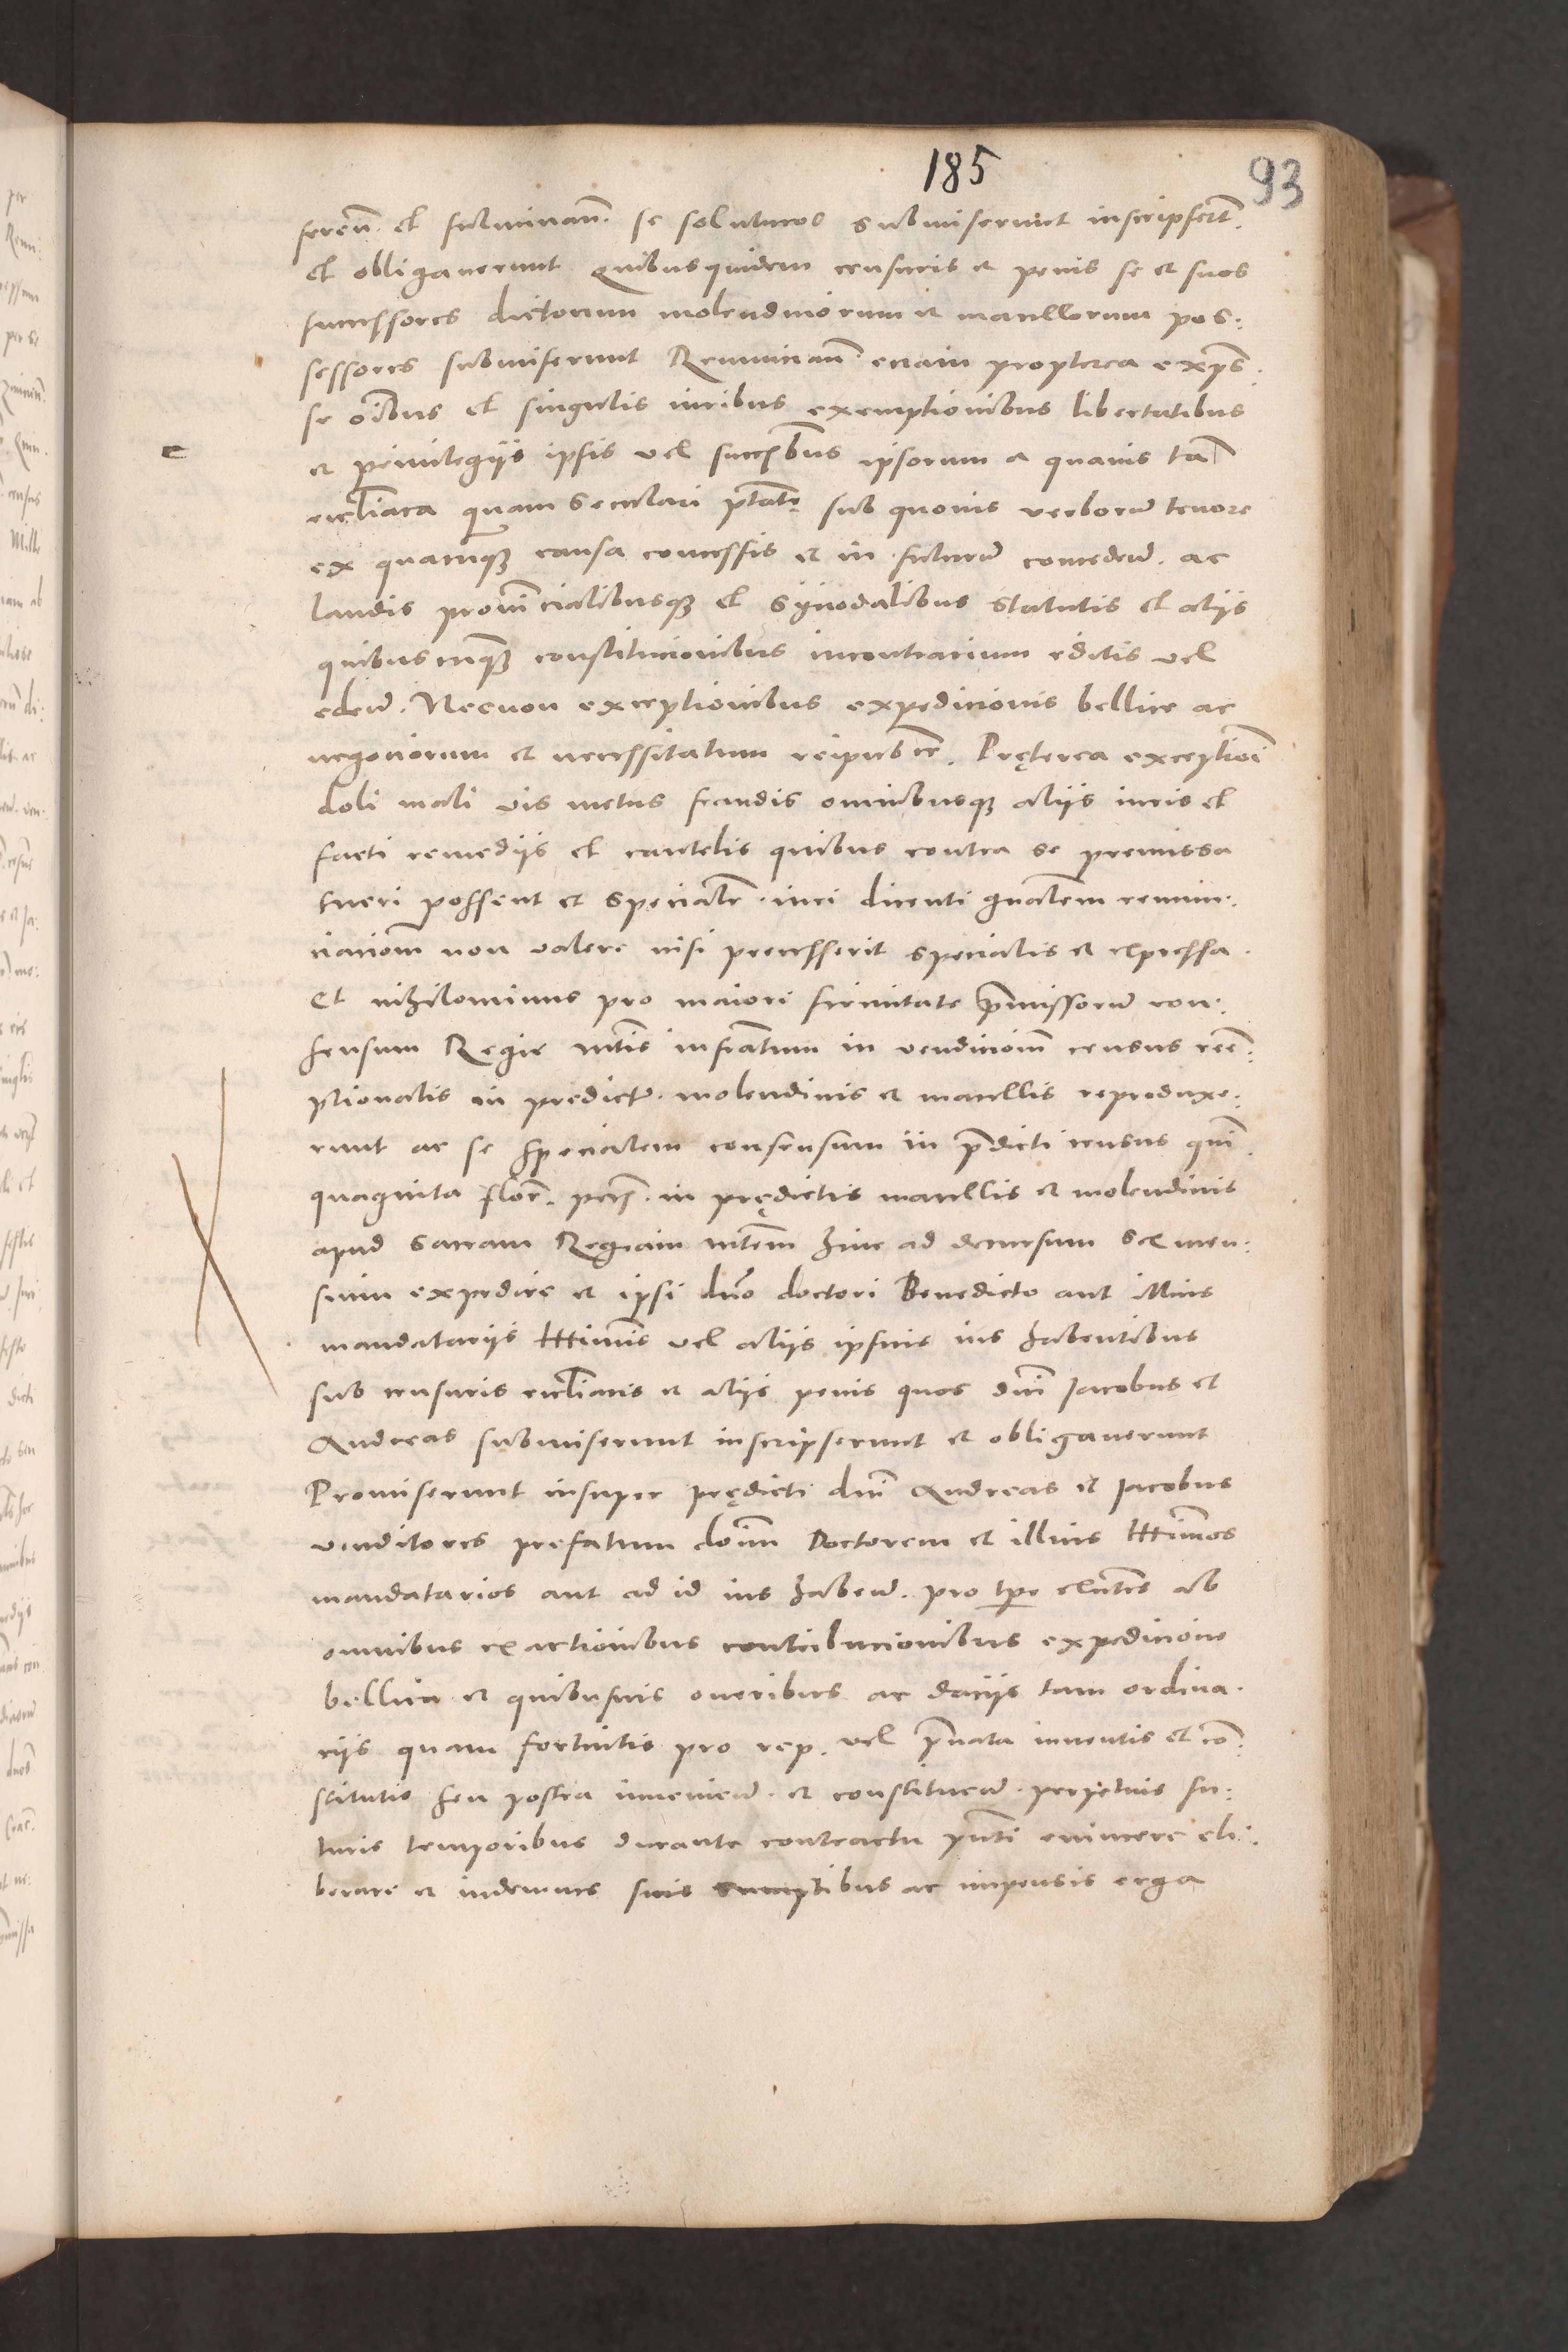 185
93
feren. et fulminan. se soluturos submiserunt inscripsert.
et obligaverunt Quibusquidem censuris et penis se et suos
successores dictorum molendinorum et macellorum pos:
sessores submiserunt Renuncian. eciam propterea exprs.
se oibus et singulis iuribus exemptionibus libertatibus
et privilegijs ipsis vel succesbus ipsorum a quavis tam
ecclīaca quam seculari ptate sub quovis verborum tenore
ex quacunque causa concessis et in futurum conceden. ac
laudis provincialibusque et synodalibus statutis et alijs
quibuscunque constitucionibus incontrarium editis vel
eden. Necnon exceptionibus expedicionis bellice ac
negociorum et necessitatum reipubce. Pręterea exceptioni
doli mali vis metus fraudis omnibusque alijs iuris et
facti remedijs et cautelis quibus contra se premissa
tueri possent et specialr. iuri dicenti gnalem renun:
ciacionem non valere nisi precesserit specialis et expressa.
Et nihilominus pro maiori firmitate pmissorum con:
sensum Regie mtis infratum in vendicionem census reem:
ptionalis in predictis molendinis et macellis reproduxe:
runt ac se specialem consensum in pdicti census quin
quaginta floren. pecus. in prędictis macellis et molendinis
apud sacram Regiam mtem hinc ad decursum sex men:
sium expedire et ipsi duo doctori Benedicto aut illius
mandatarijs ttimis vel alijs ipsius ius habentibus
sub censuris eccliacis et alijs penis quos dni Jacobus et
Andreas submiserunt inscripserunt et obligaverunt
Promiserunt insuper prędicti dni Andreas et Jacobus
venditores prefatum donn Doctorem et illius ttimos
mandatarios aut ad id ius haben. pro tpe existentes ab
omnibus exactionibus contribucionibus expedicione
bellica et quibusvis oneribus ac dacijs tam ordina.
rijs quam fortuitis pro rep. vel privata inventis et con:
stitutis seu postea invenien. et constituen. perpetuis fu:
turis temporibus durante contractu pnti evincere eli:
berare et indemnes suis sumptibus ac impensis erga